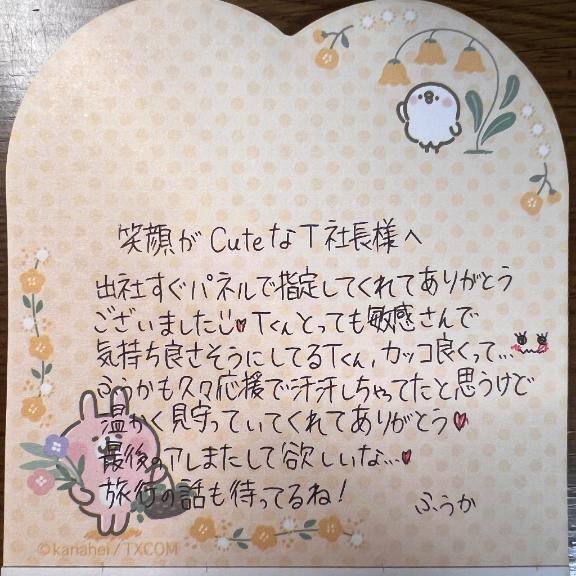 笑顔がCuteなT社長様へ
出社すぐパネルで指定してくれてありがとう
ございました♥Tくんとっても敏感さんで
気持ち良さそうにしてるTくん,カッコ良くって...
ふうかも久々応援で汗汗しちゃってたと思うけど
温かく見守っていてくれてありがとう♥
最後のアレまたして欲しいな...♥
旅行の話も待ってるね!
ふうか
©kanahei/TXCOM